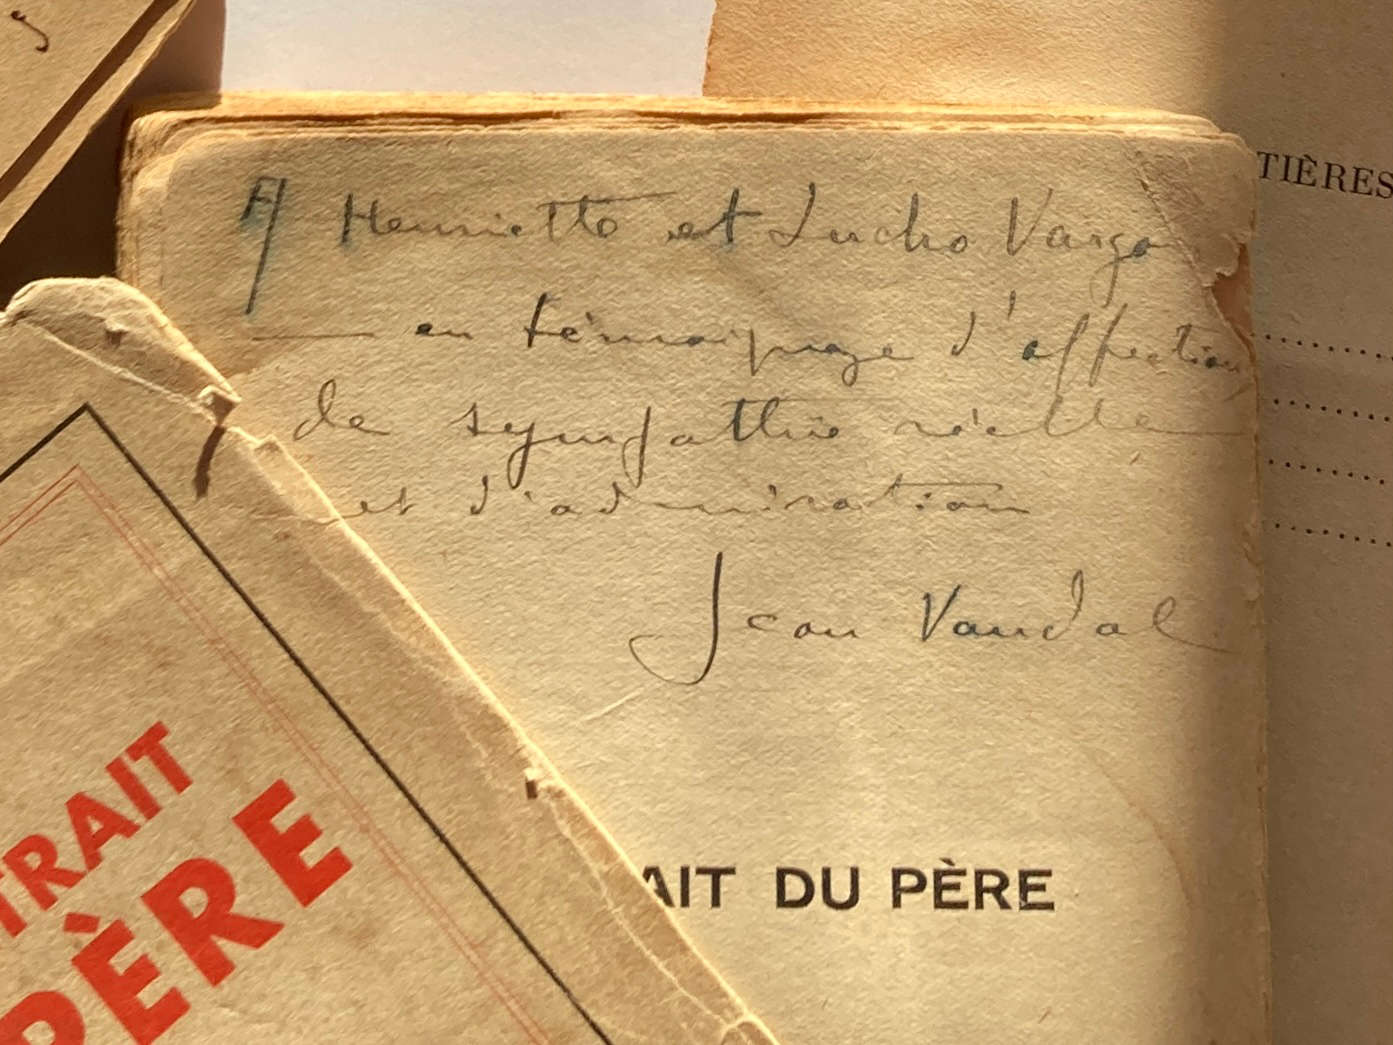 A Henriette et Lucho Vargas
— en témoignage d'affection
de sympathie réelle
et d'admiration
Jean Vandal
AIT DU PÈRE
TRAIT
PÈRE
TIÈRES